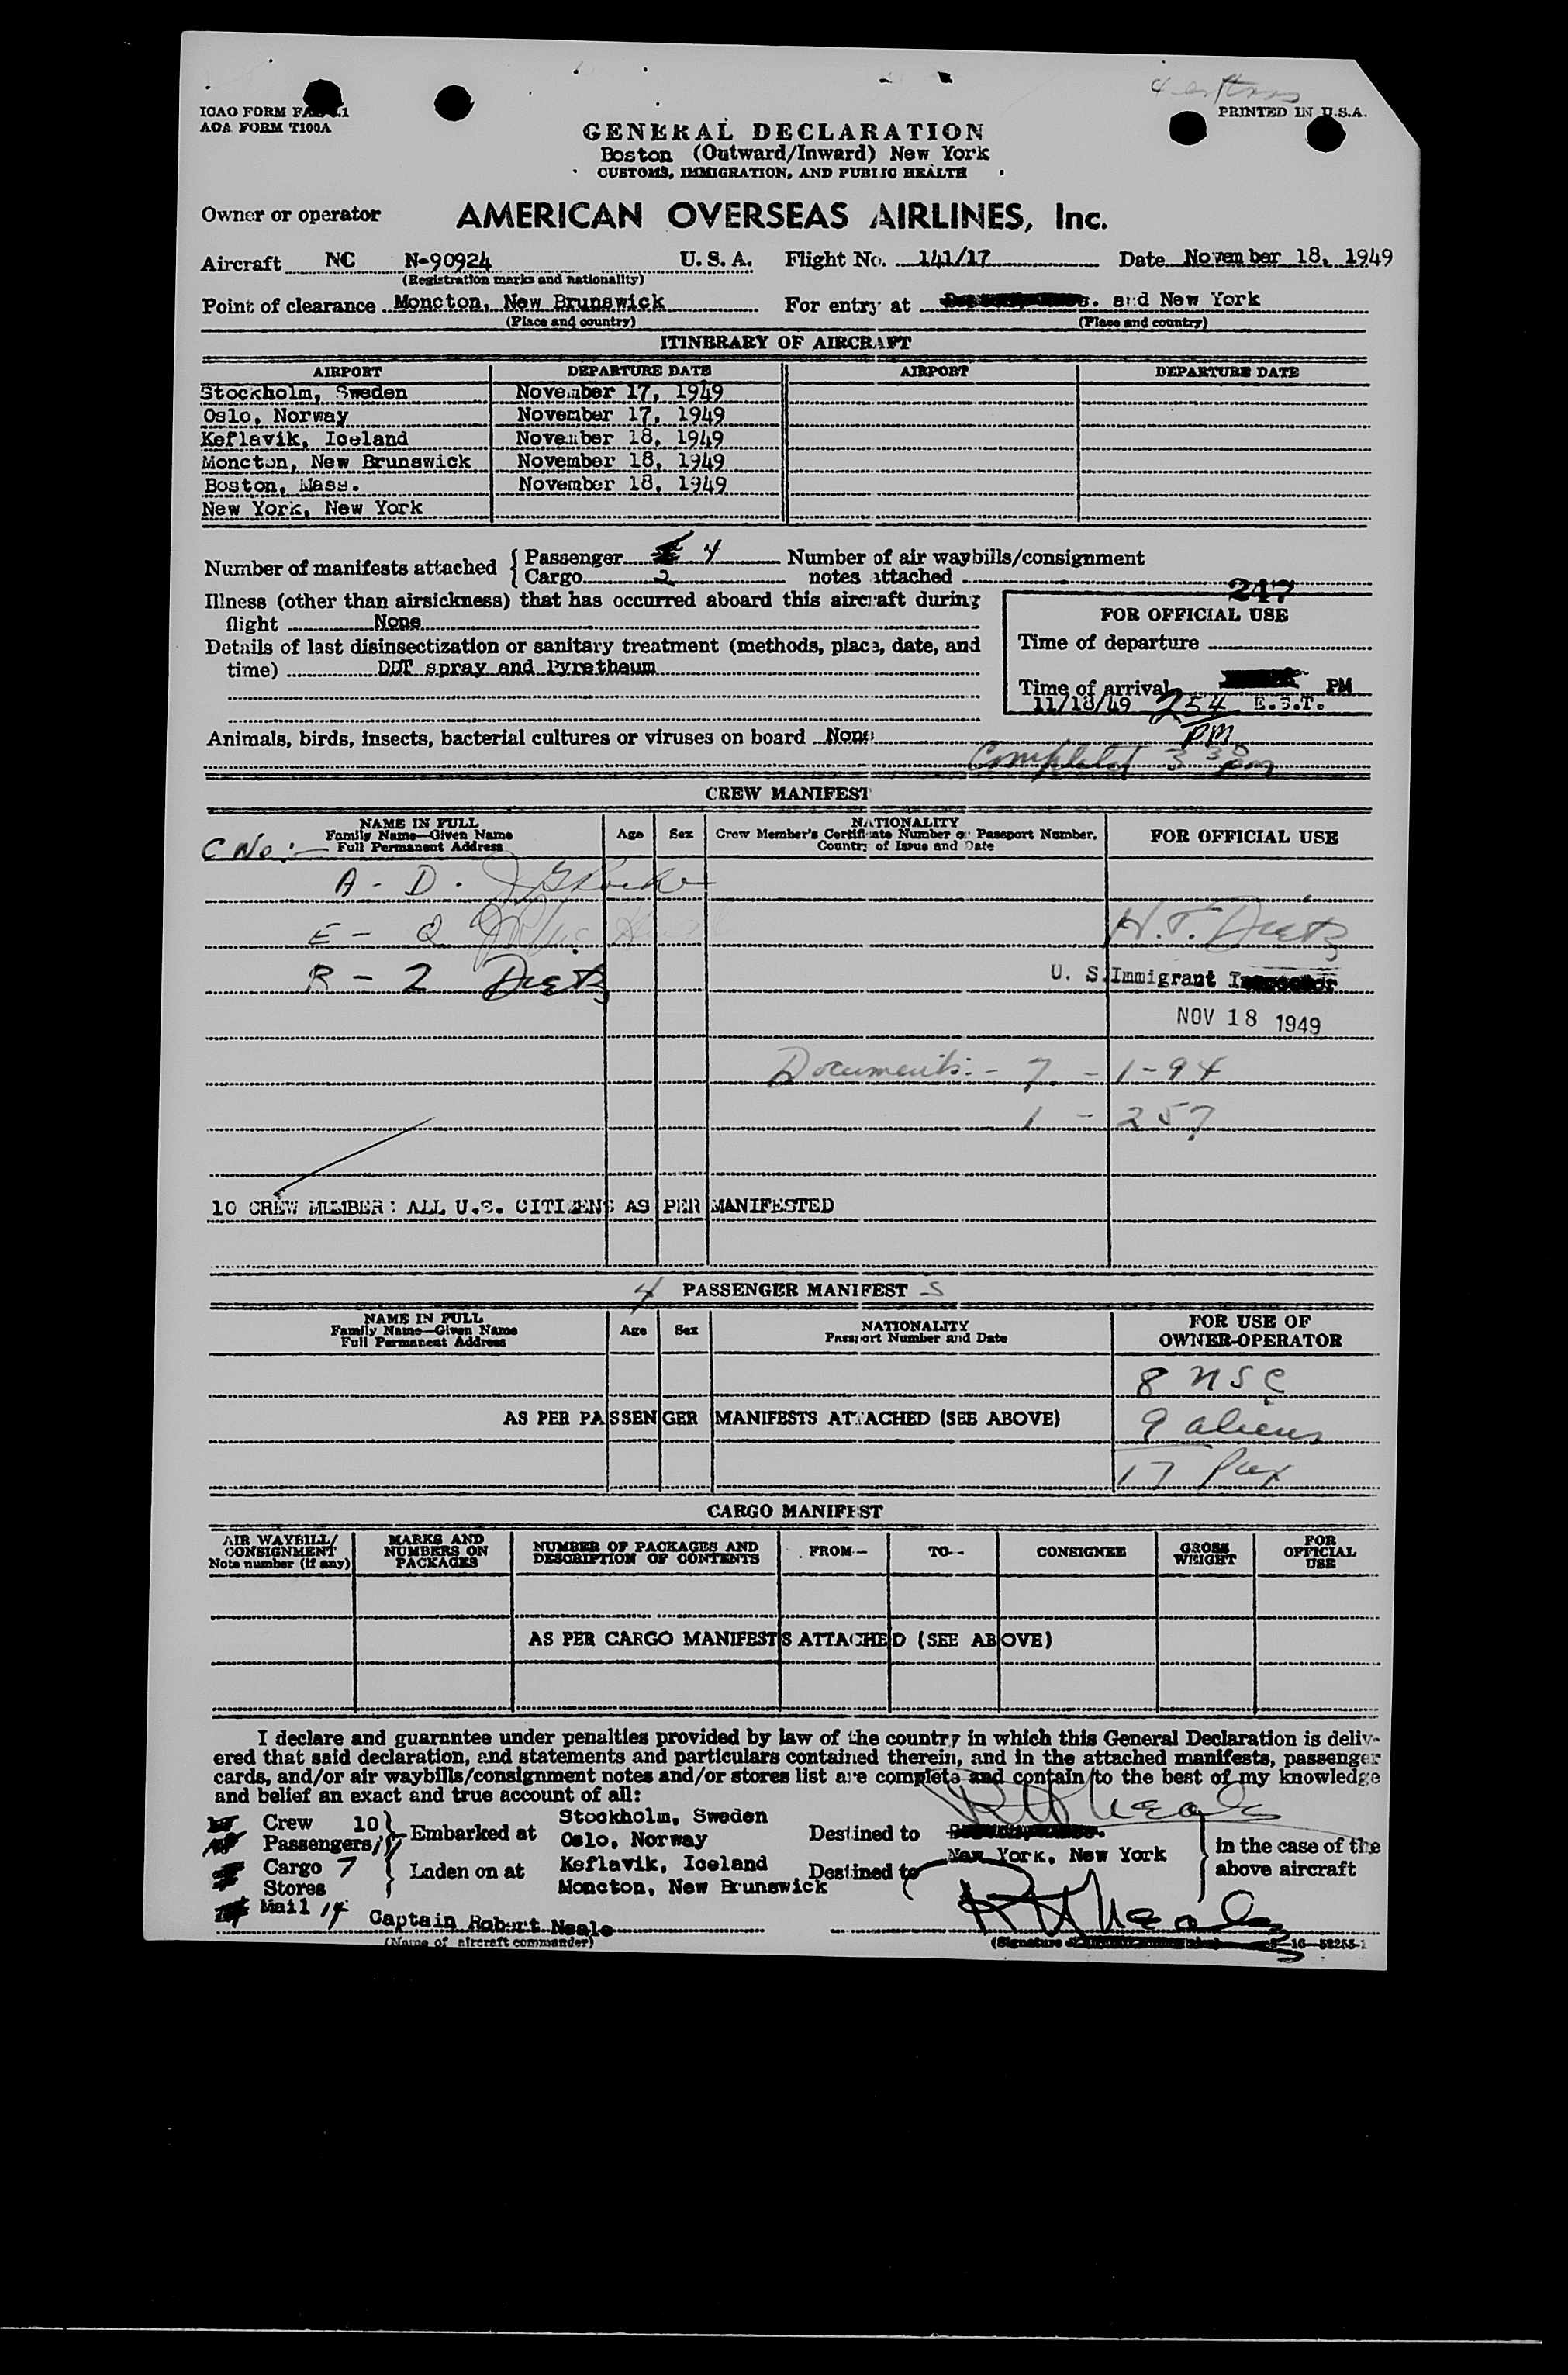 ICAO FORM
AOA FORM T100A
PRINTED IN U.S.A.
GENERAL DECLARATION
Boston (Outward/Inward) New York
CUSTOMS, IMMIGRATION, AND PUBLIC HEALTH
Owner or operator AMERICAN OVERSEAS AIRLINES, Inc.
Aircraft NC N-90924 U.S.A. Flight No. 141/17 Date November 18, 1949
(Registration marks and nationality)
Point of clearance Moncton, New Brunswick For entry at and New York
(Place and country) (Place and country)
ITINERARY OF AIRCRAFT
AIRPORT DEPARTURE DATE AIRPORT DEPARTURE DATE
Stockholm, Sweden November 17, 1949
Oslo, Norway November 17, 1949
Keflavik, Iceland November 18, 1949
Moncton, New Brunswick November 18, 1949
Boston, Mass. November 18, 1949
New York, New York
Number of manifests attached { Passenger 4 Number of air waybills/consignment
Cargo 2 notes attached
247
Illness (other than airsickness) that has occurred aboard this aircraft during
flight None
FOR OFFICIAL USE
Details of last disinsectization or sanitary treatment (methods, place, date, and
time) DDT spray and Pyretheum
Time of departure
Time of arrival PM
11/18/49 254 E.S.T.
PM
Animals, birds, insects, bacterial cultures or viruses on board None
Completed 3 30 pm
CREW MANIFEST
NAME IN FULL
Family Name—Given Name
Full Permanent Address
Age Sex
NATIONALITY
Crew Member's Certificate Number or Passport Number,
Country of Issue and Date
FOR OFFICIAL USE
C No:-
A - D.
E - Q
H.T. Dietz
R - Z Dietz
U. S. Immigrant Inspector
NOV 18 1949
Documents:- 7 - 1-94
1 - 257
10 CREW MEMBERS ALL U.S. CITIZENS AS PER MANIFESTED
4 PASSENGER MANIFEST S
NAME IN FULL
Family Name—Given Name
Full Permanent Address
Age Sex
NATIONALITY
Passport Number and Date
FOR USE OF
OWNER-OPERATOR
8 USC
AS PER PASSENGER MANIFESTS ATTACHED (SEE ABOVE)
9 aliens
17 Pax
CARGO MANIFEST
AIR WAYBILL/
CONSIGNMENT
Note number (if any)
MARKS AND
NUMBERS ON
PACKAGES
NUMBER OF PACKAGES AND
DESCRIPTION OF CONTENTS
FROM—
TO—
CONSIGNEE
GROSS
WEIGHT
FOR
OFFICIAL
USE
AS PER CARGO MANIFESTS ATTACHED (SEE ABOVE)
I declare and guarantee under penalties provided by law of the country in which this General Declaration is deliv-
ered that said declaration, and statements and particulars contained therein, and in the attached manifests, passenger
cards, and/or air waybills/consignment notes and/or stores list are complete and contain to the best of my knowledge
and belief an exact and true account of all:
Crew 10
Passengers 17
Cargo 7
Stores
Mail 14
Embarked at
Laden on at
Stockholm, Sweden
Oslo, Norway
Keflavik, Iceland
Moncton, New Brunswick
Destined to
Destined to
New York, New York
in the case of the
above aircraft
R H Neale
Captain Robert Neale
(Name of aircraft commander)
R H Neale
(Signature
16—52255-1